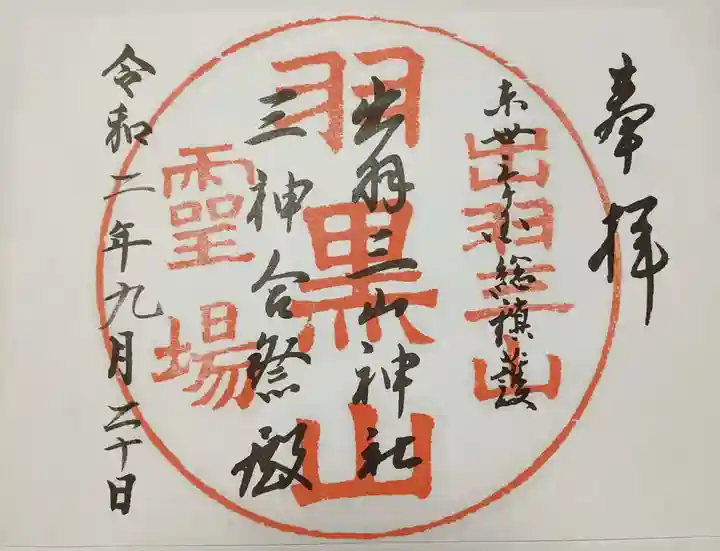 奉拝
東丗三ヶ国総鎮護
出羽三山
出羽三山神社
羽黒山
三神合祭殿
靈場
令和二年九月二十日